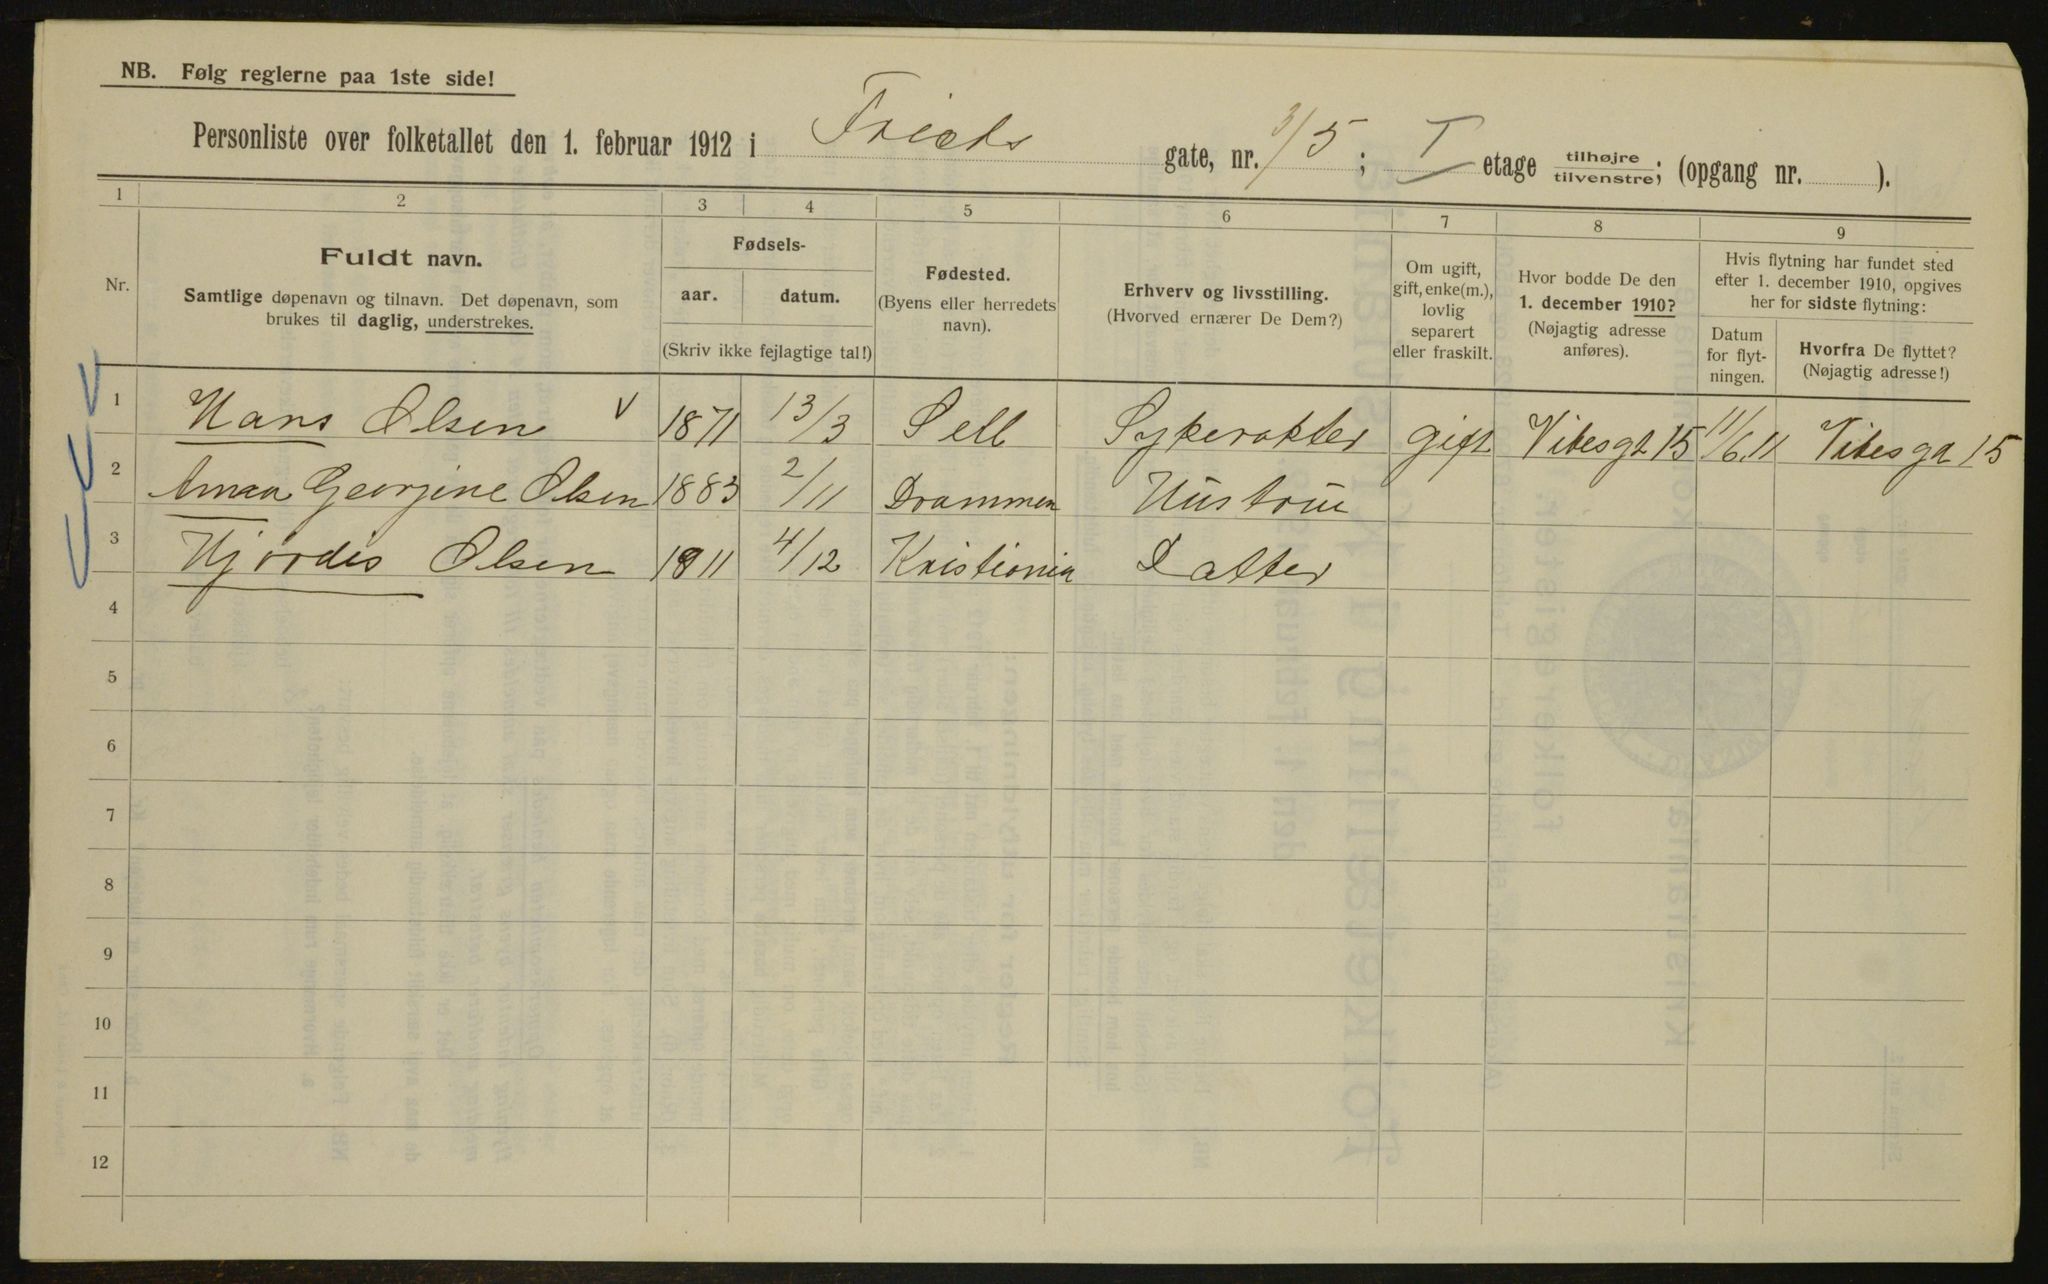 NB. Følg reglerne paa 1ste side!
Personliste over folketallet den 1. februar 1912 i gate, nr. 3/5; I etage tilhøjre/tilvenstre; (opgang nr. ).
1 2 3 4 5 6 7 8 9
Nr.
Fuldt navn.
Samtlige døpenavn og tilnavn. Det døpenavn, som
brukes til daglig, understrekes.
Fødsels-
aar. datum.
(Skriv ikke fejlagtige tal!)
Fødested.
(Byens eller herredets
navn).
Erhverv og livsstilling.
(Hvorved ernærer De Dem?)
Om ugift,
gift, enke(m.),
lovlig
separert
eller fraskilt.
Hvor bodde De den
1. december 1910?
(Nøjagtig adresse
anføres).
Hvis flytning har fundet sted
efter 1. december 1910, opgives
her for sidste flytning:
Datum
for flyt-
ningen.
Hvorfra De flyttet?
(Nøjagtig adresse!)
1 Hans Olsen 1871 13/3 Sell Sykevokter gift Vibesgt 15 11/6 11 Vibesga 15
2 Anna Georgine Olsen 1883 2/11 Drammen Hustrue
3 Hjørdis Olsen 1911 4/12 Kristiania Datter
4
5
6
7
8
9
10
11
12